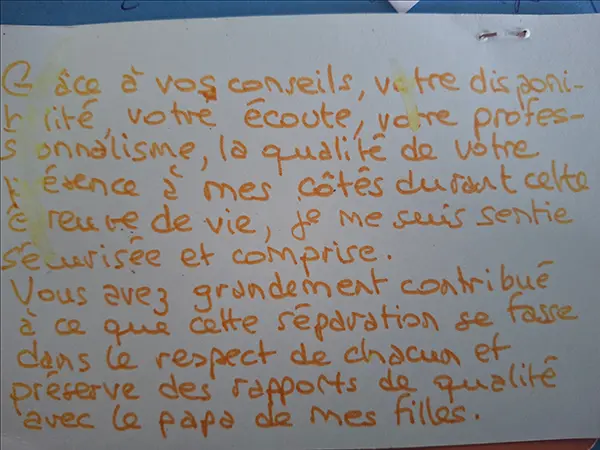 Grâce à vos conseils, votre disponi-
bilité, votre écoute, votre profes-
sionnalisme, la qualité de votre
présence à mes côtés durant cette
épreuve de vie, je me suis sentie
sécurisée et comprise.
Vous avez grandement contribué
à ce que cette séparation se fasse
dans le respect de chacun et
préserve des rapports de qualité
avec le papa de mes filles.